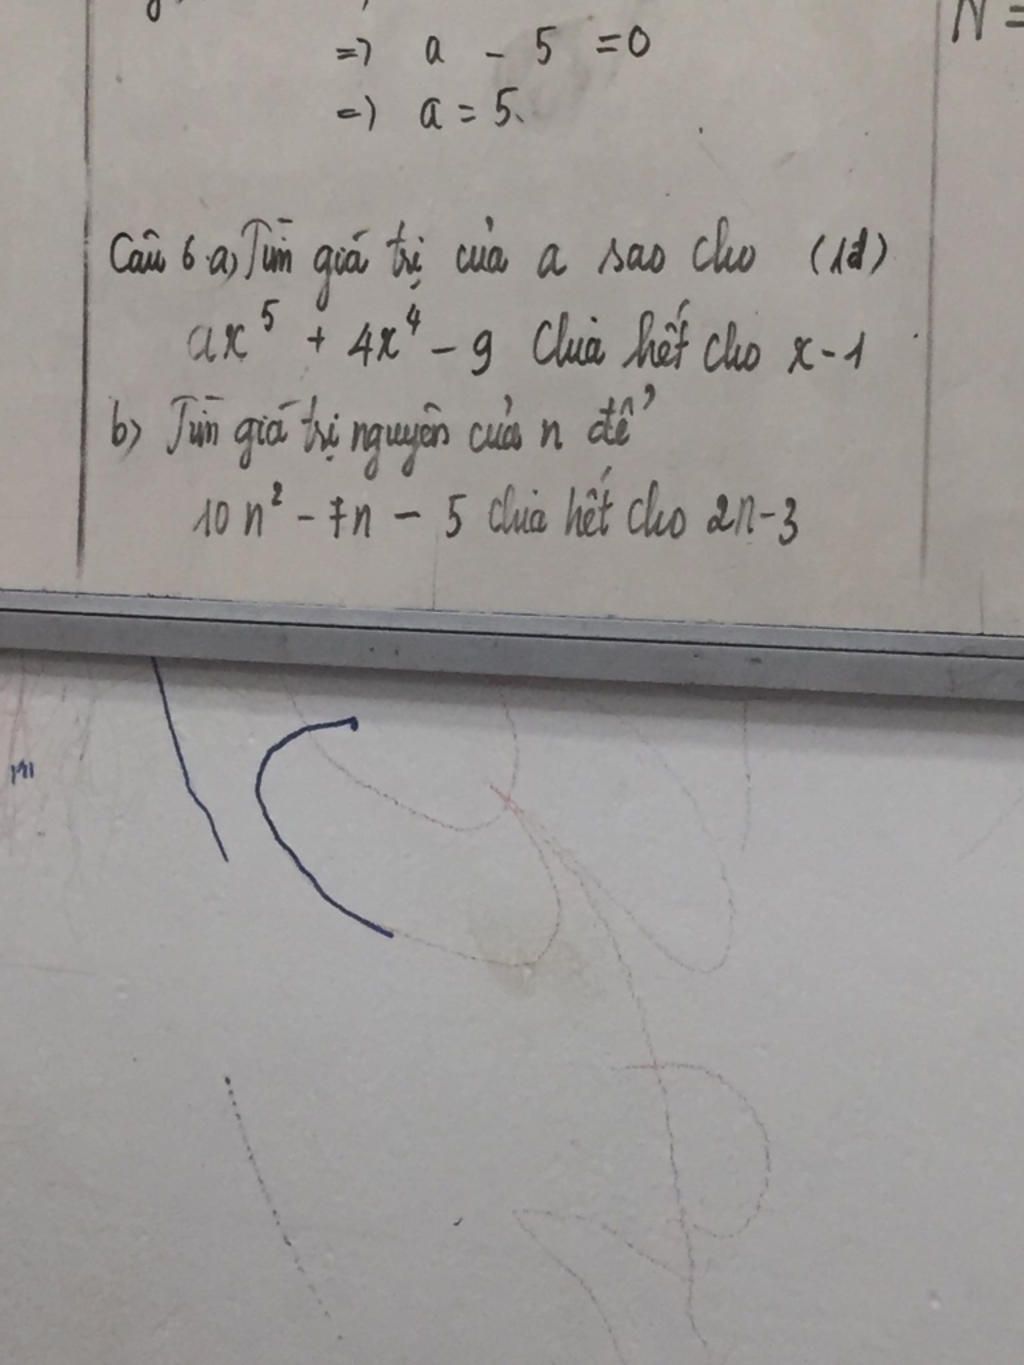 => a - 5 = 0
=> a = 5.
N =
Câu 6.a) Tìm giá trị của a sao cho (1đ)
ax⁵ + 4x⁴ - 9 chia hết cho x - 1
b) Tìm giá trị nguyên của n để
10n² - 7n - 5 chia hết cho 2n - 3